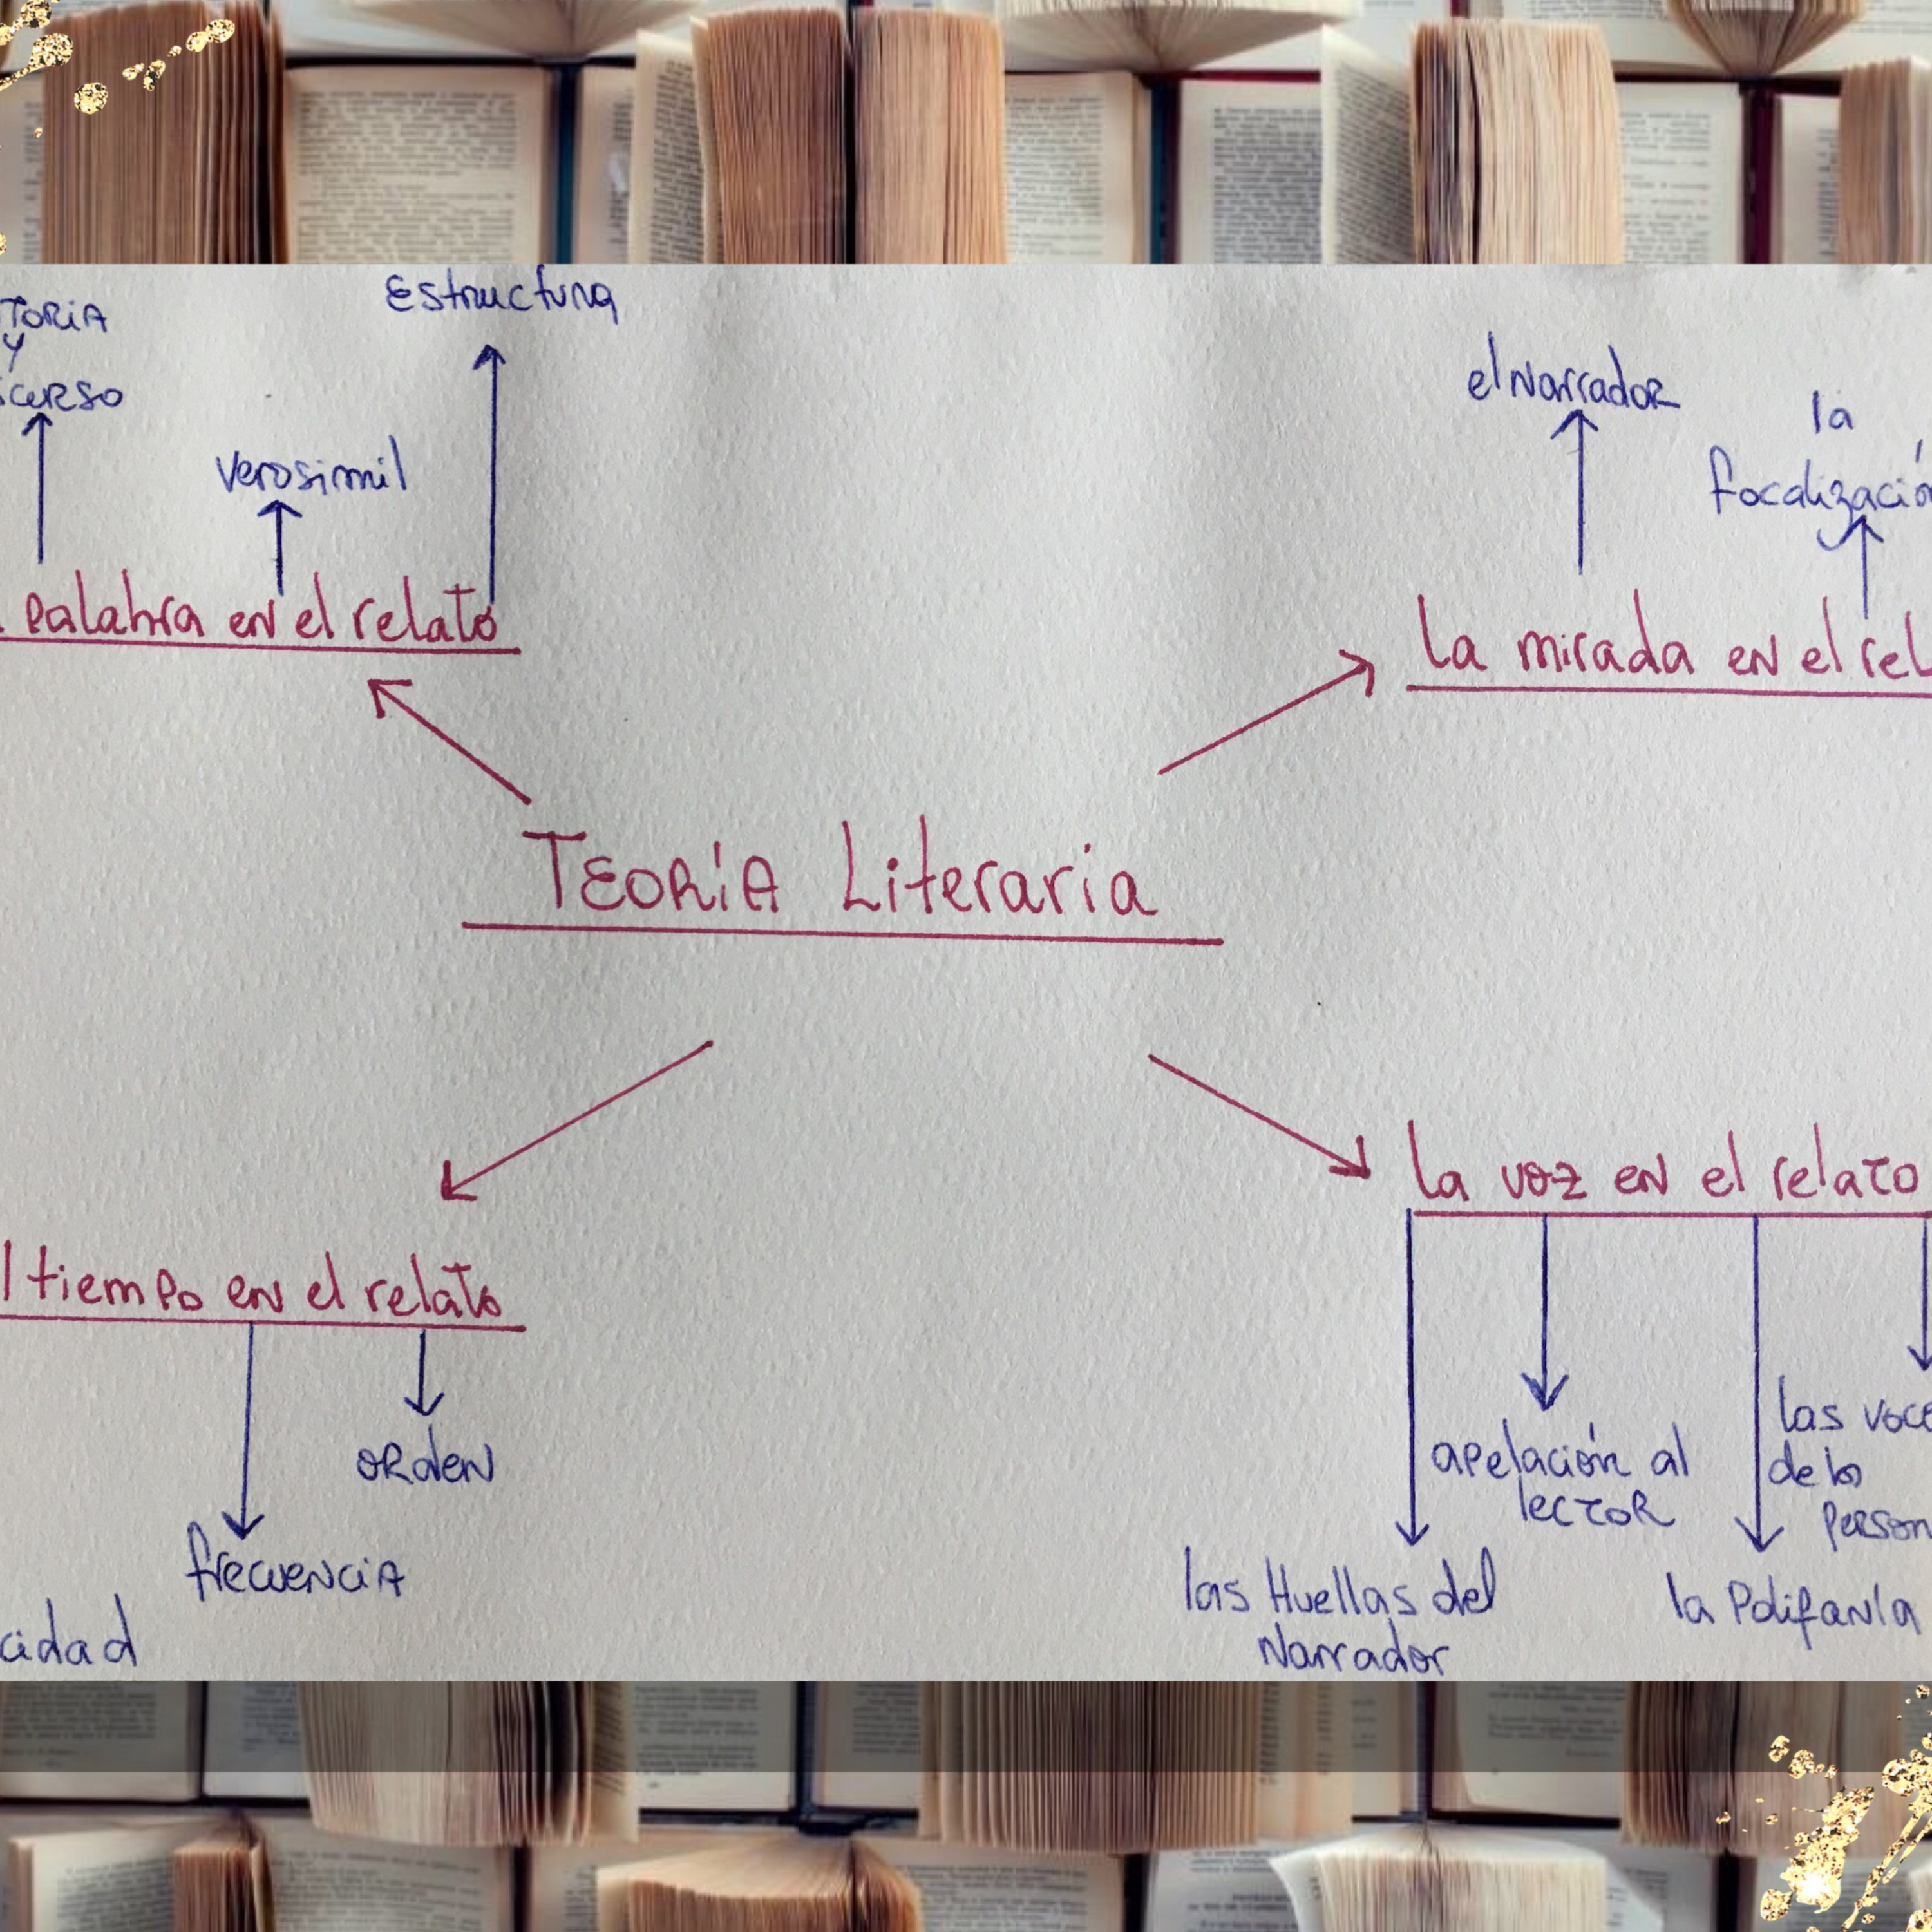 TORIA
y
CURSO
Estructura
Verosimil
Palabra en el relato
el Narrador
la
focalización
La mirada en el rel
TEORÍA Literaria
l tiempo en el relato
orden
frecuencia
cidad
La voz en el relato
apelación al
lector
las voce
de los
Person
las Huellas del
Narrador
la Polifanía